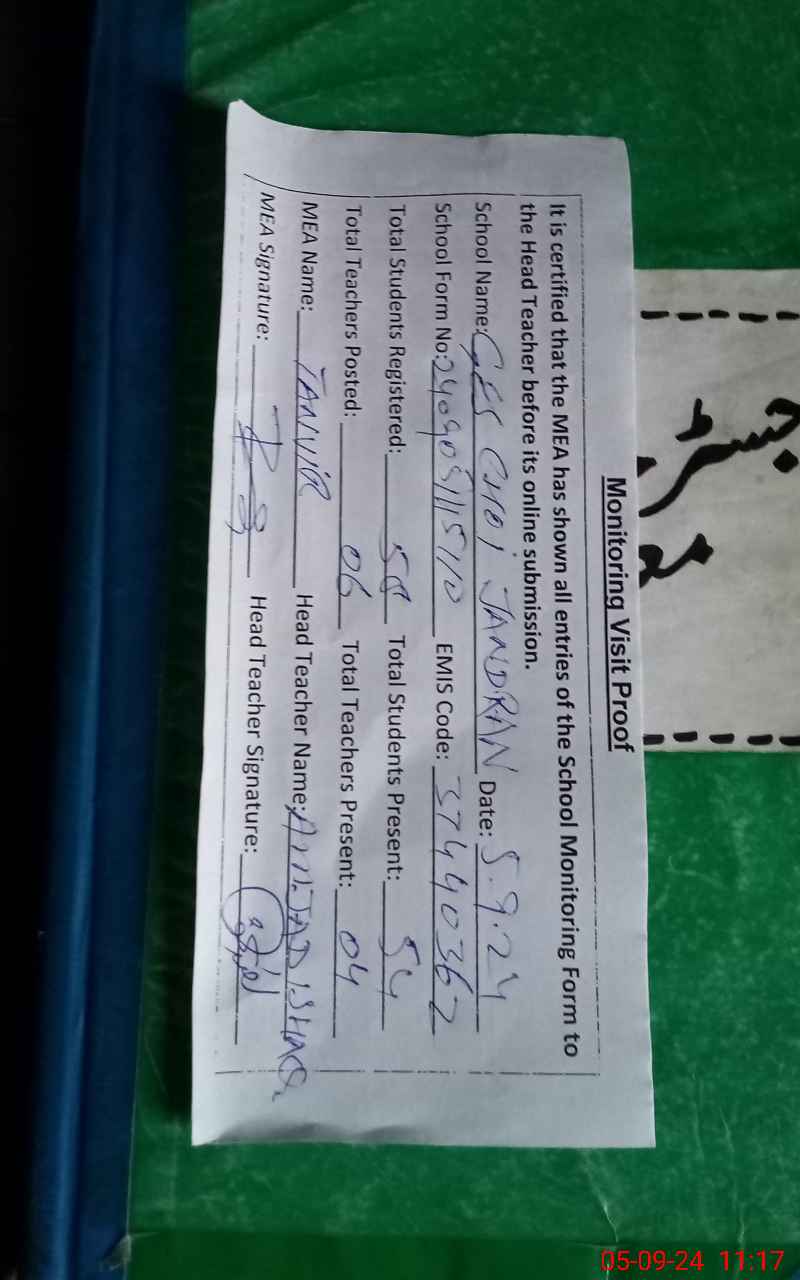 Monitoring Visit Proof
It is certified that the MEA has shown all entries of the School Monitoring Form to
the Head Teacher before its online submission.
School Name: GES CHOI JANDRAN Date: 5.9.24
School Form No: EMIS Code: 37440362
Total Students Registered: 58 Total Students Present: 54
Total Teachers Posted: 06 Total Teachers Present: 04
MEA Name: TANVIR Head Teacher Name: AMJAD ISHAQ
MEA Signature: Head Teacher Signature:
05-09-24 11:17